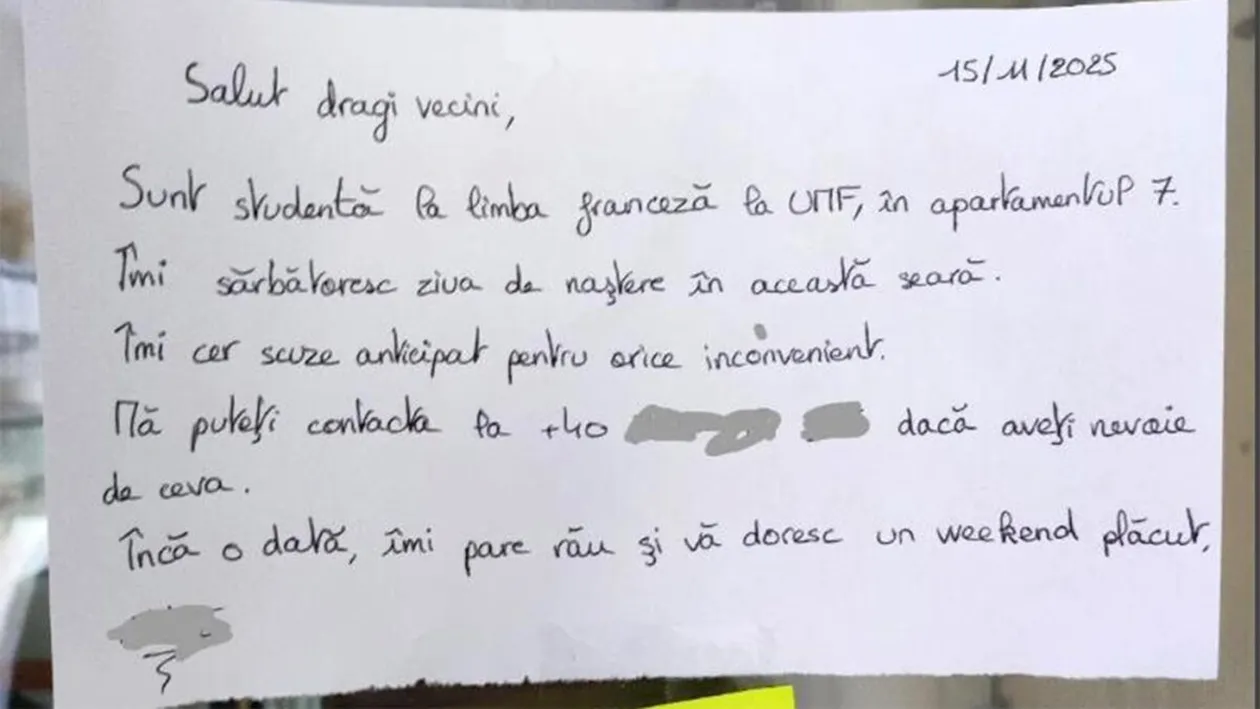 15/11/2025
Salut dragi vecini,
Sunt studentă la limba franceză la UMF, în apartamentul 7.
Îmi sărbătoresc ziua de naştere în această seară.
Îmi cer scuze anticipat pentru orice inconvenient.
Mă puteţi contacta la +40 dacă aveţi nevoie
de ceva.
Încă o dată, îmi pare rău şi vă doresc un weekend plăcut,